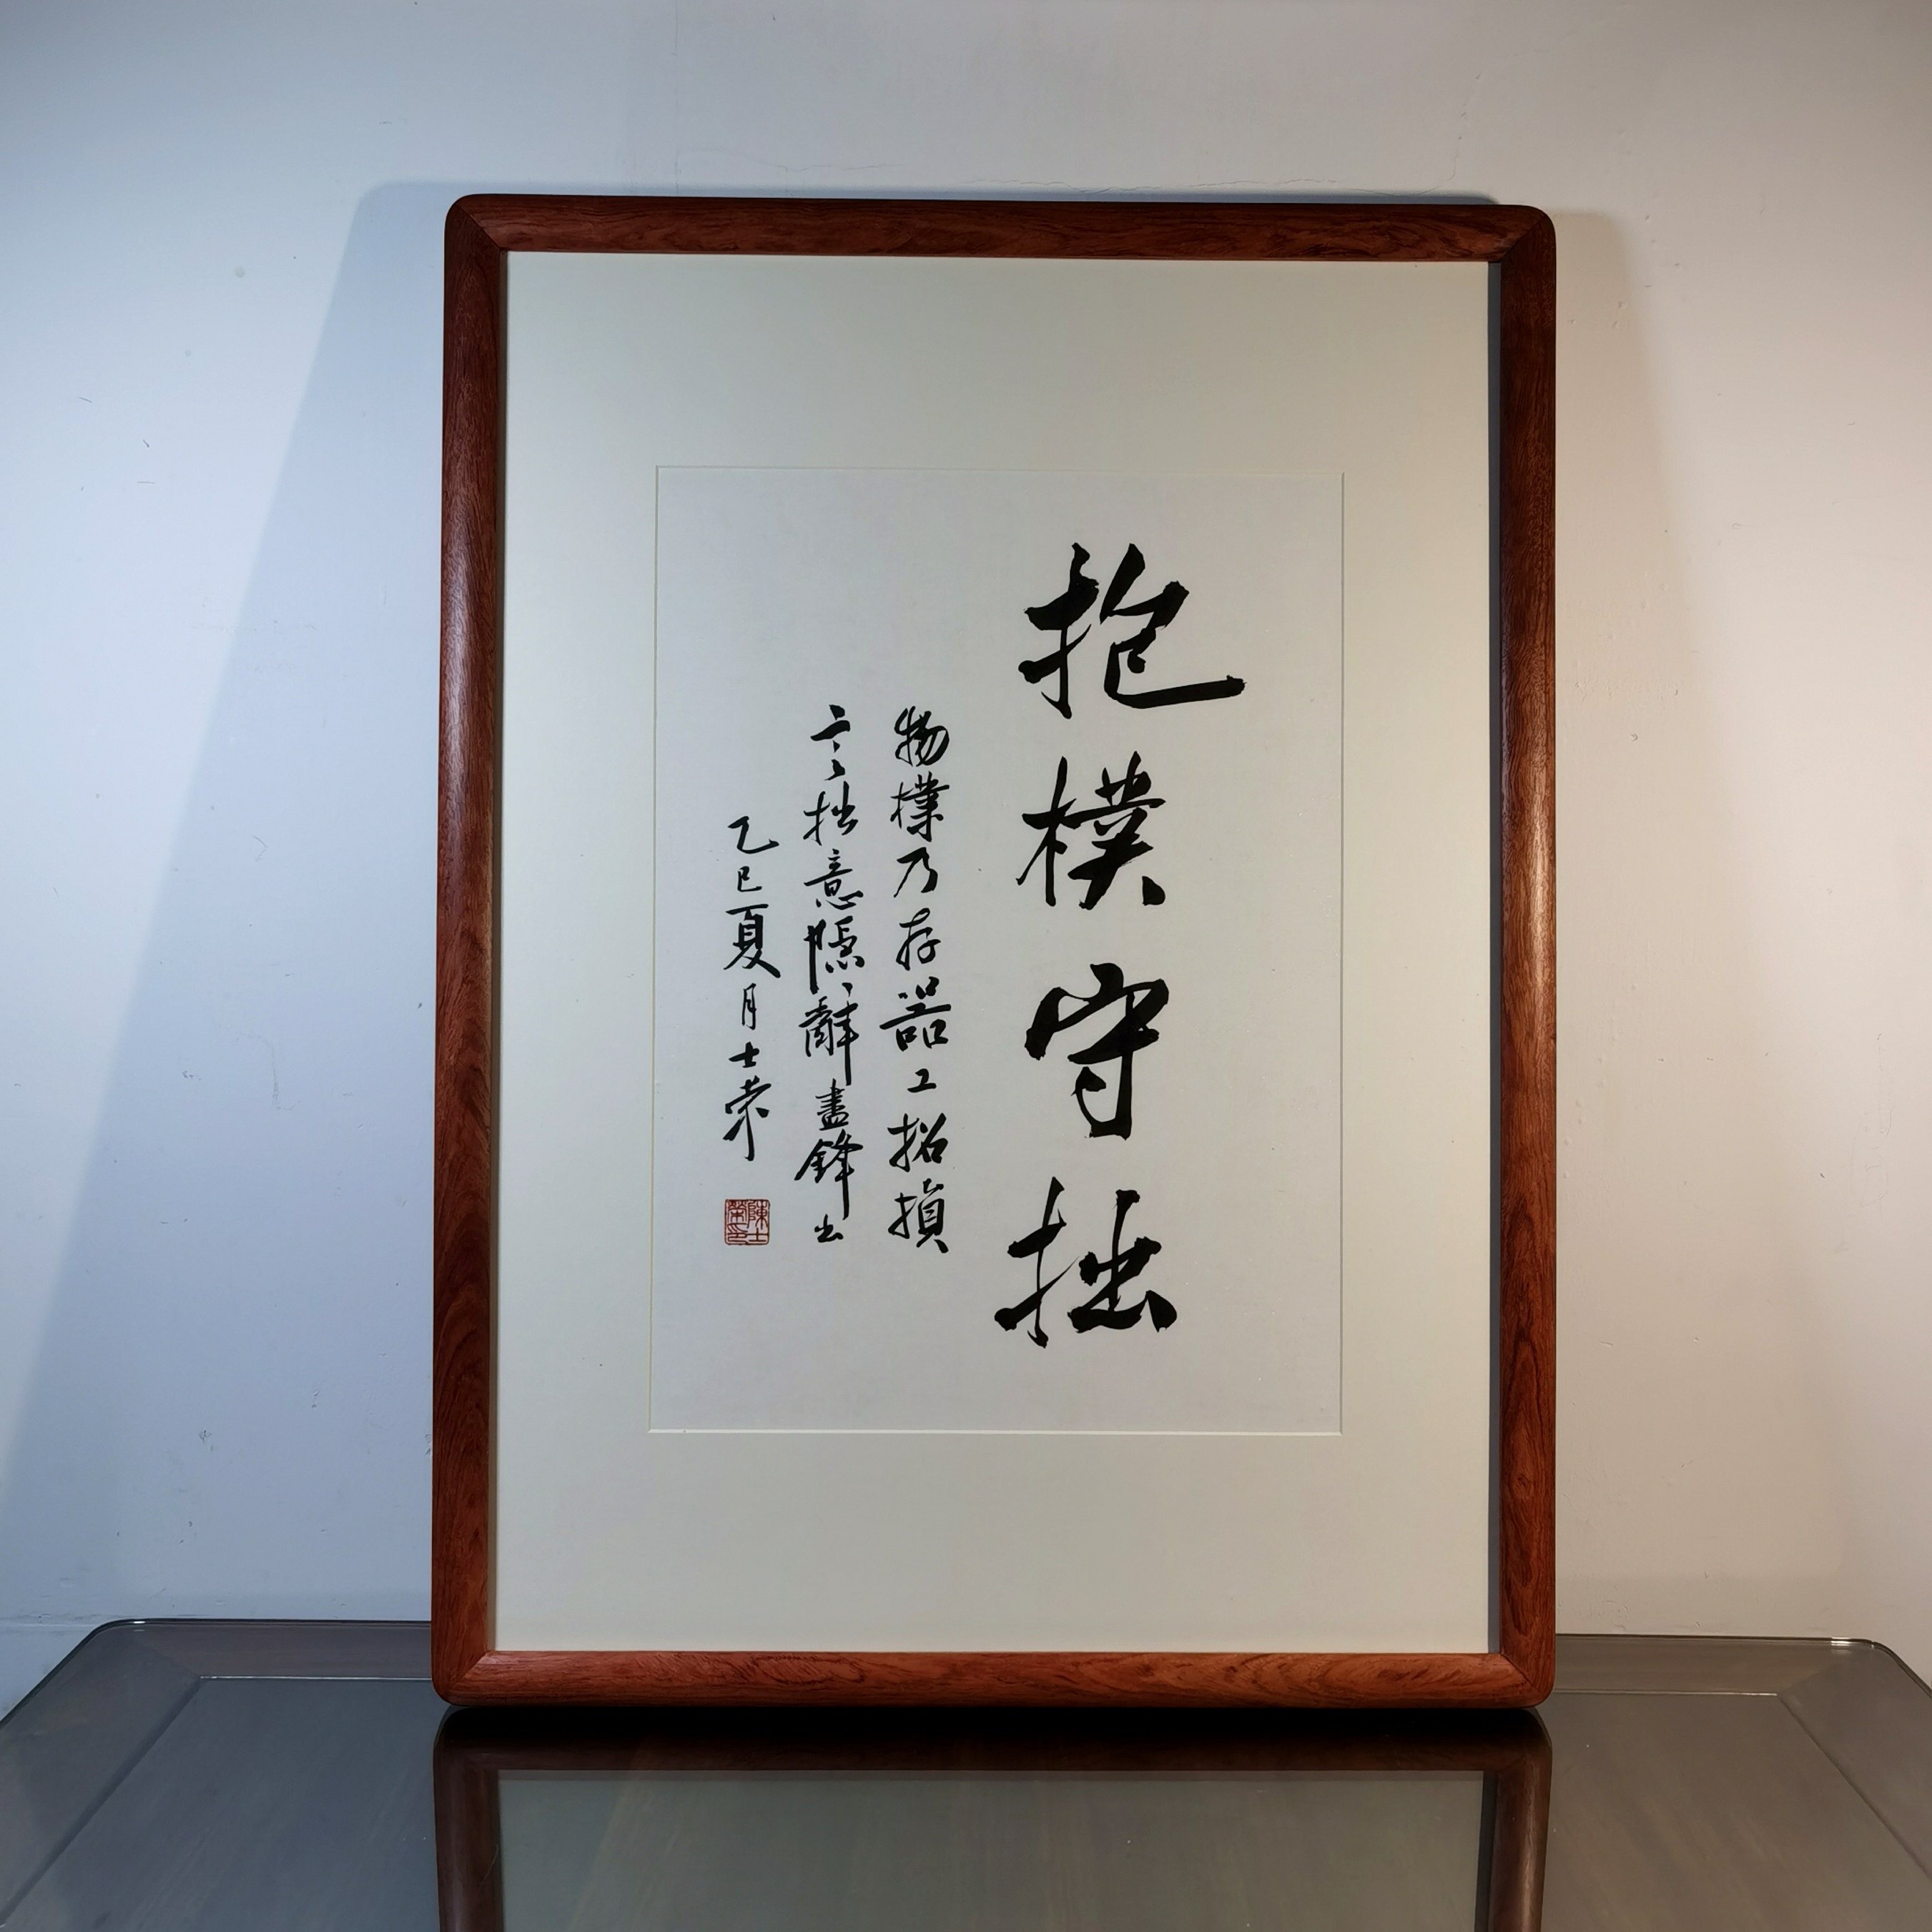 抱樸守拙
物樸乃存器工招損
言拙意隱辭盡鋒出
乙巳夏月士榮
陳士榮印